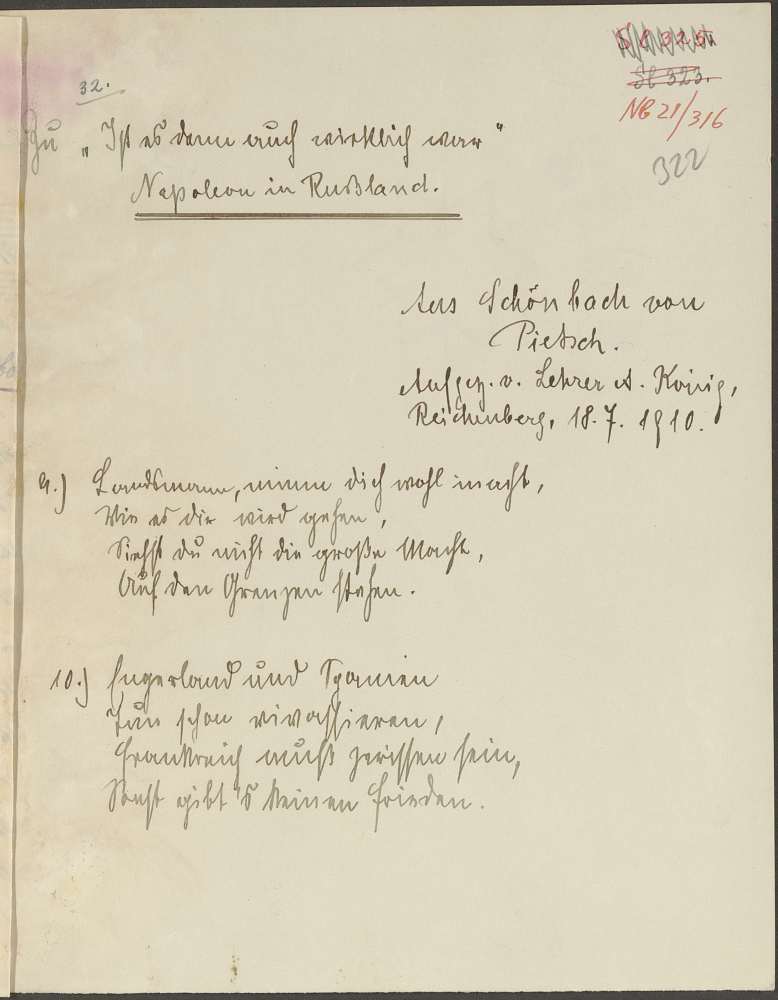 32.
Sl 323.
NB 21/316
322
Zu „Ist es denn auch wirklich war"
Napoleon in Rußland.
Aus Schönbach von
Pietsch.
Aufgez. v. Lehrer A. König,
Reichenberg, 18. 7. 1910.
9.) Landsmann, nimm dich wohl inacht,
Wie es dir wird gehen,
Siehst du nicht die große Macht,
Auf den Grenzen stehen.
10.) Engerland und Spanien
Tun schon
Frankreich muß zerissen sein,
Sonst gibt's keinen Frieden.